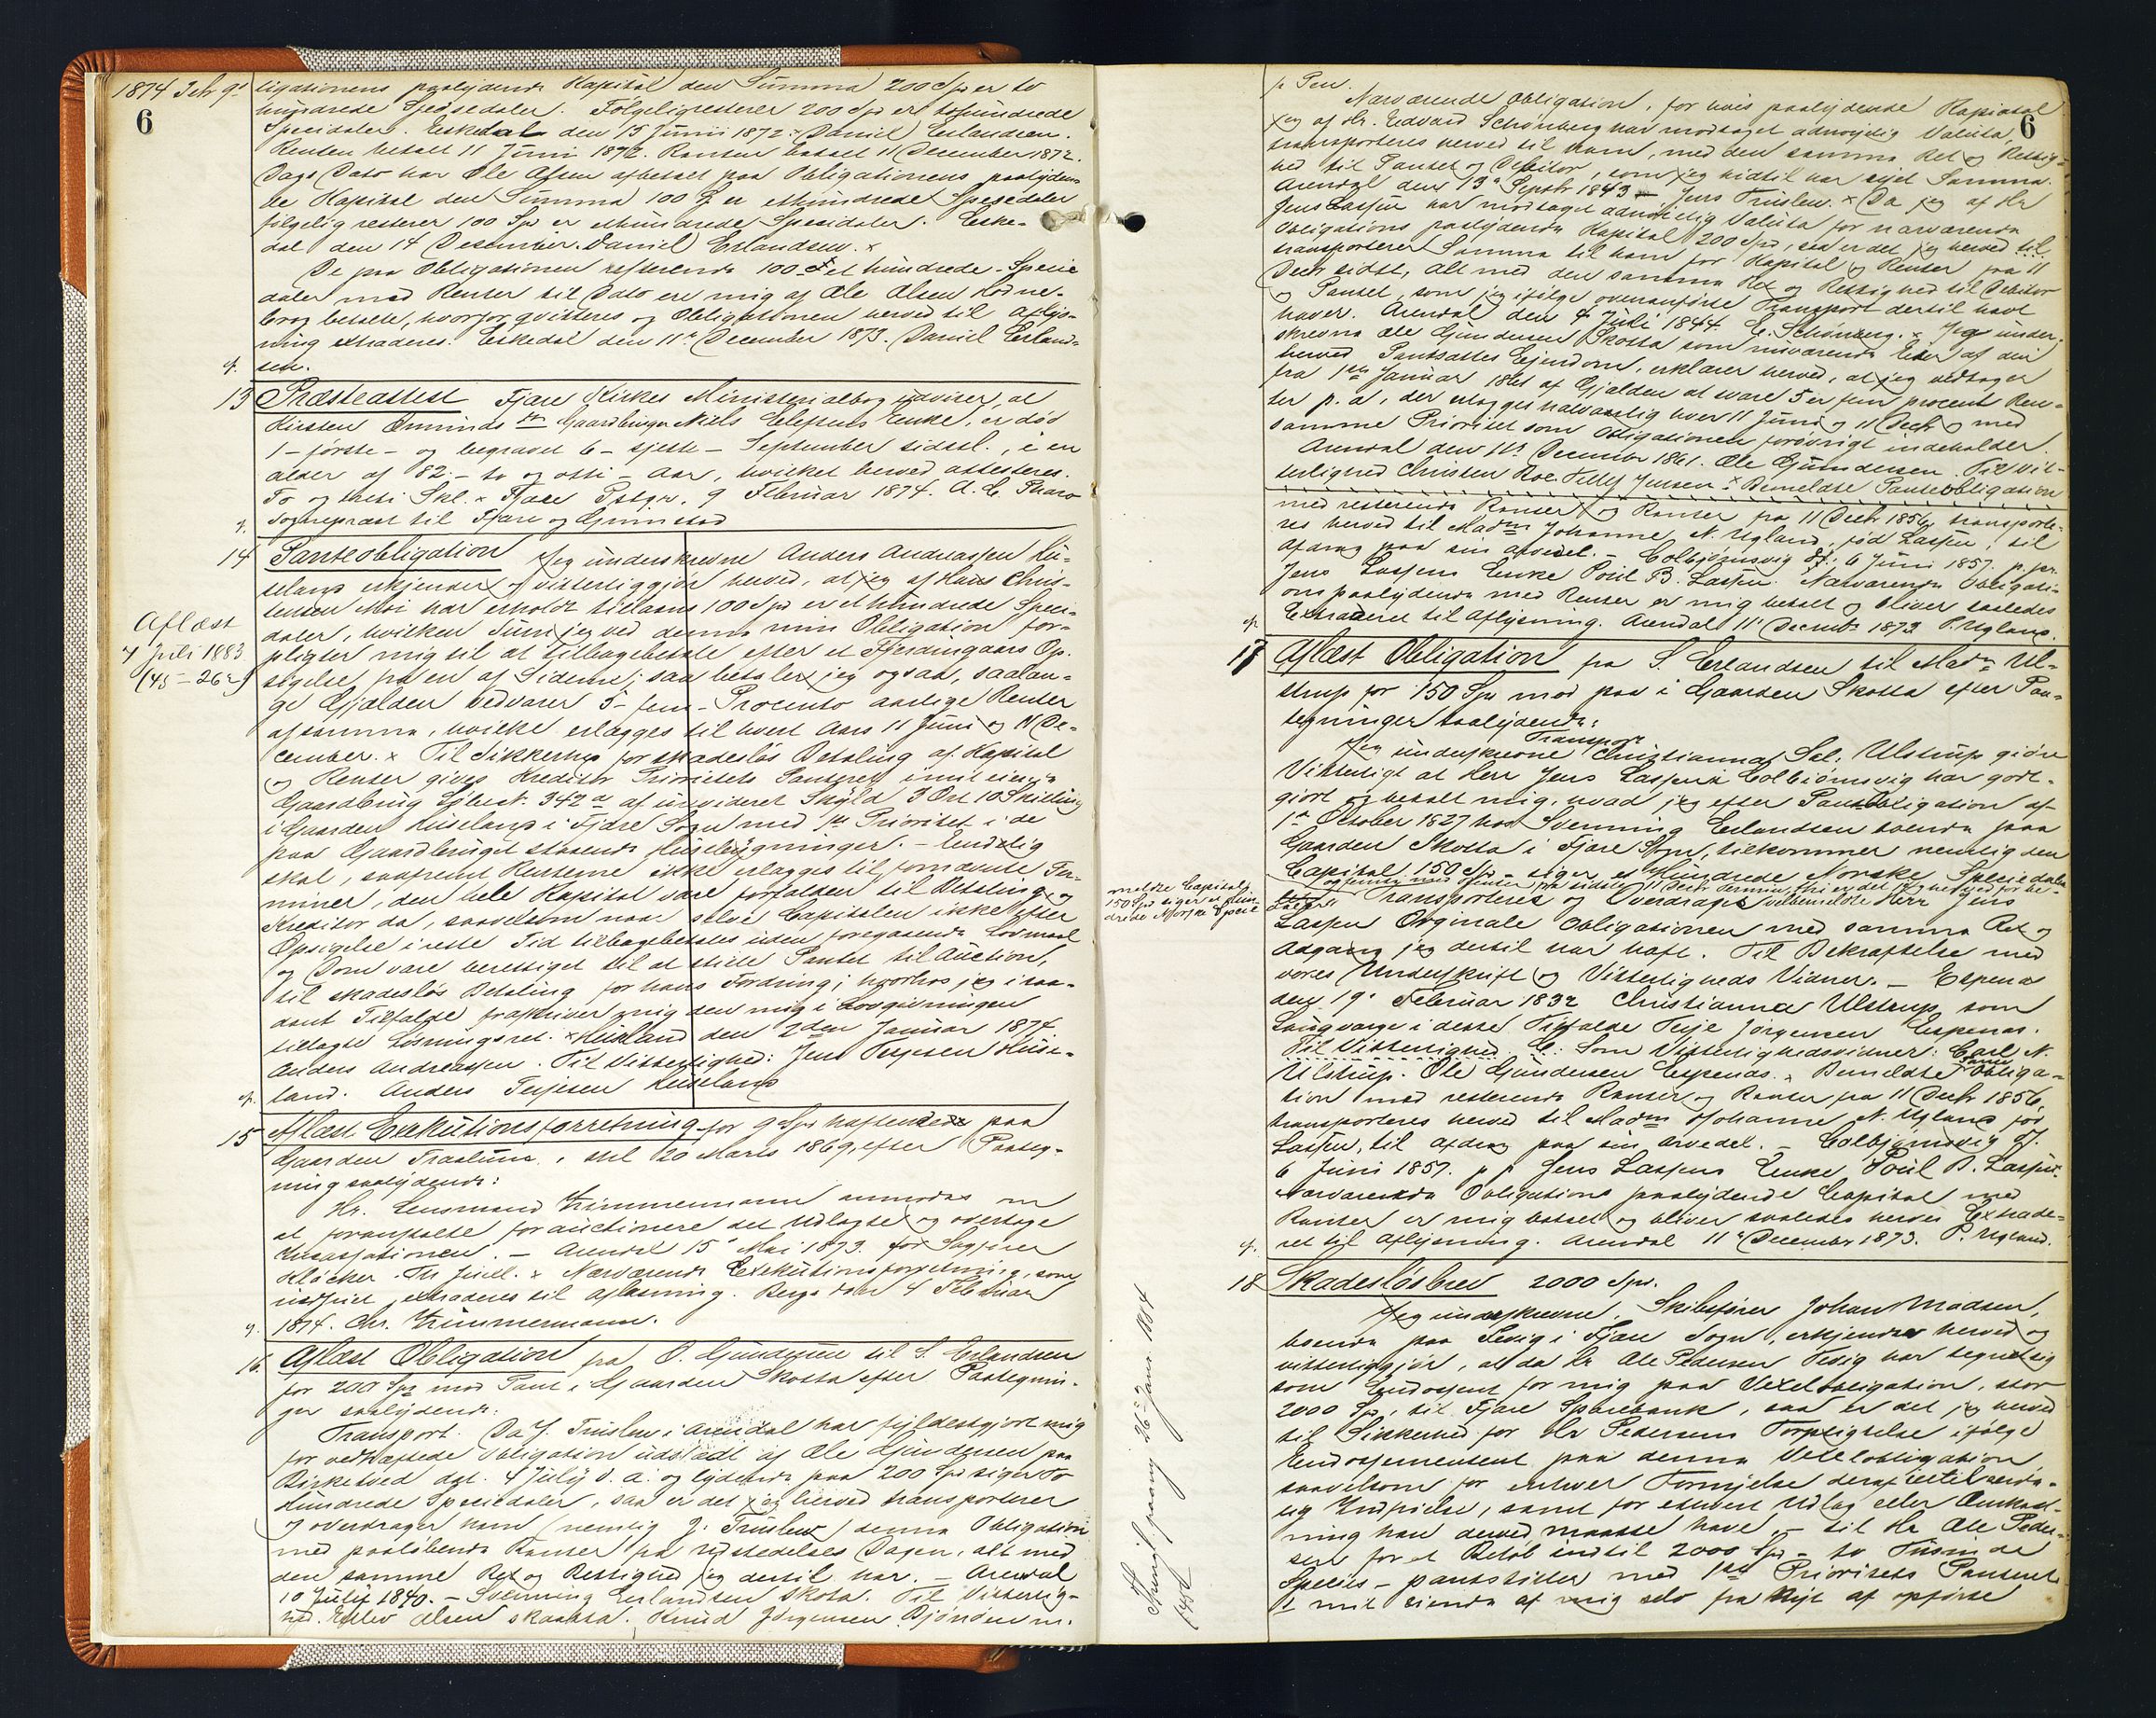 1874 Febr 9d
6
ligationens paalydende Kapital den Summa 200 Spd er to
hundrede Speciedaler. Følgelig resterer 200 Spd er tohundrede
Specidaler. Eskedal den 15 Junii 1872. Daniel Erlandsen.
Renten betalt 11 Juni 1872. Renten betalt 11 December 1872.
Dags Dato har Ole Olsen afbetalt paa Obligationens paalyden-
de Kapital den Summa 100 Spd er ethundrede Spesedaler
følgelig resterer 100 Spd er ethundrede Spesidaler. Eske-
dal den 14 Desember. Daniel Erlandsen. x
De paa Obligationen resterende 100 Spd et hundrede Specie
daler med Renter til Dato ere mig af Ole Olsen
brog betalte, hvorfor qvitteres og Obligationen herved til Aflys-
ning extraderes. Eskedal den 11te December 1873. Daniel Erland-
sen.
13 Præsteattest Fjære Kirkes Ministerialbog udviser, at
Kirsten Omundsdtr Gaardbruger Niels Elefsens Enke, er død
1 - første - og begravet 6 - sjette - September sidstl., i en
alder af 82 - to og otti - Aar, hvilket herved attesteres.
To og treti Skl. x Fjære Pstgr. 9 Februar 1874. A. C. Tharo
Sognepræst til Fjære og Grimstad
14 Panteobligation Jeg underskrevne Anders Andreassen Hu-
seland erkjender og vitterliggjør herved, at jeg af Hans Chris-
tensen Moi har erholdt tillaans 100 Spd er ethundrede Speci-
daler, hvilken Sum jeg ved denne min Obligation for-
pligter mig til at tilbagebetale efter et Fjerdingaars Op-
sigelse fra en af Siderne; saa betaler jeg ogsaa, saalan-
ge Gjælden vedvarer 5 - fem - Procento aarlige Renter
af samme, hvilke erlægges til hvert Aars 11 Juni og 11 De-
cember. x Til Sikkerhed for skadesløs Betaling af Kapital
og Renter gives Kreditor Prioritets Panteret i mit eiende
Gaardbrug Løbe N. 342a af urevideret Skyld 3 Ort 10 Skilling
i Gaarden Huseland i Fjære Sogn med 1ste Prioritet i de
paa Gaardbruget staaende Husebygninger. - Endelig
skal, saafremt Renterne ikke erlægges til fornævnte Ter-
miner, den hele Kapital være forfalden til Betaling, og
Kreditor da, saavelsom naar selve Capitalen ikke efter
Opsigelse i rette Tid tilbagebetales uden foregaaende Lovmaal
og Dom være berettiget til at stille Pantet til Auction,
til skadesløs Betaling for hans Fordring; hvorhos jeg i saa-
dant Tilfælde frafalder mig den mig i Lovgivningen
tillagte Løsningsret. x Huseland den 2den Januar 1874.
Anders Andreassen. Til Vitterlighed: Jens Terjesen Huse-
land. Anders Terjesen Huseland
Aflæst
4 Juli 1883
(45 - 262)
15 Aflæst Exekutionsforretning for 9 Spd haftende paa
Gaarden Traalum, thl 20 Marts 1869, efter Paateg-
ning saalydende:
Hr. Lensmand Zimmermann anmodes om
at foranstalte forauctionere det Udlagte og overtage
Incassationen. - Arendal 15de Mai 1873. for Sagfører
Kløcker. x Nærværende Exekutionsforretning, som
indfriet, extraderes til Aflæsning. Berge den 4 Februar
1874. Chr. Zimmermann.
16. Aflæst Obligation fra O. Gundersen til S. Erlandsen
for 200 Spd mod Pant i Gaarden Skotta efter Paategnin-
ger saalydende:
Transport. Da J. Truslew i Arendal har fyldestgjort mig
for vedhæftede Obligation udstædt af Ole Gundersen paa
Birketved dat. 4 July d. a. og lydende paa 200 Spd siger To
Hundrede Speciedaler, saa er det jeg herved transporterer
og overdrager ham (nemlig J. Truslew) denne Obligation
med paaløbende Renter fra Udstedelses Dagen, alt med
den samme Ret og Rettighed jeg dertil har. - Arendal
10 July 1840. - Svenning Erlandsen Skotta. Til Vitterlig-
hed. Ellev Olsen Skaatta. Knud Jørgensen Bjonden m.
f. Pen.
6
Nærværende Obligation, for hvis paalydende Kapital
jeg af Hr. Edvard Schønberg har modtaget adnøjelig Valuta,
transporteres herved til ham, med den samme Ret og Rettig-
hed til Pantet og Debitor, som jeg hidtil har ejet Samme.
Arendal den 13de Septbr 1843. Jens Truslew. x Da jeg af Hr
Jens Lassen har modtaget adnøielig Valuta for nærværende
Obligations paalydende Kapital 200 Spd, saa er det jeg herved til
transporterer Samme til ham for Kapital og Renter fra 11
Decb sidst, alt med den samme Ret og Rettighed til Debitor
og Pantet, som jeg ifølge ovenanførte Transport dertil have
haver. Arendal den 4 Juli 1844. E. Schønberg. x Jeg under-
skrevne Ole Gundersen Skotta som nuværende Eier af den
herved Pantsatte Ejendom, erklærer herved, at jeg vedtager
fra 1ste Januar 1861 af Gjælden at svare 5 er fem procent Ren-
ter p. a., der erlægges halvaarlig hver 11 Juni og 11 Decb og med
samme Prioritet som Obligationen forøvrigt indeholder.
Arendal den 11te December 1861. Ole Gundersen. Til Vit-
terlighed Christen Roe. Jensen x Bemeldte Panteobligation
med resterende Renter og Renter fra 11 Decb 1856, transporte-
res herved til Madm Johanne N. Ugland, fød Lassen, til
Afdrag paa sin Arvedel. - Colbjørnsvig d. 6 Juni 1857. p. pr.
Jens Lassens Enke Poul B. Lassen. Nærværende Obligati-
ons paalydende med Renter er mig betalt og bliver saaledes
Extraderet til Aflysning. Arendal 11te Decembr 1873 P. Ugland.
17 Aflæst Obligation fra S. Erlandsen til Madm Ul-
strup for 150 Spd mod pant i Gaarden Skotta efter Paa-
tegninger saalydende:
Transport
Jeg underskrevne Christianna Sal. Ulstrup giøre
Vitterligt at Herr Jens Lassen i Colbiørnsvig har godt-
giort og betalt mig, hvad jeg efter Pantobligation af
1ste October 1827 hos Svenning Erlandsen boende paa
Gaarden Skotta i Fjære Sogn, tilkommer nemlig den
Capital 150 Spd - siger et Hundrede Norske Speciedaler
og femti med Renter fra sidste 11 Decb Termin, thi er det jeg herved for be-
meldte Capital
150 Spd siger et Hun-
drede Norske Specie
Transporteres og Overdrages velbemeldte Herr Jens
Lassen Orginale Obligationen med samme Ret og
Adgang jeg dertil har haft. Til Bekræftelse med
vores Underskrift og Vitterligheds Vidner. - Espenæs
den 19de Februar 1832 Christianna Ulstrup, som
Laugværge i dette Tilfælde Terje Jørgensen Espenæs.
Til Vitterlighed. C: Som Vitterlighedsvidner: Carl N.
Ulstrup. Ole Gundersen Espenæs. x Bemeldte Obliga-
tion med resterende Renter og Renter fra 11 Decb 1856,
transporteres herved til Madm Johanne N. Ugland fød
Lassen, til Afdrag paa sin Arvedel. - Colbjørnsvig d.
6 Juni 1857. p p Jens Lassens Enke Poul B. Lassen.
Nærværende Obligations paalydende Capital med
Renter er mig betalt og bliver saaledes herved Extrade-
ret til Aflysning. Arendal 11te December 1873. P. Ugland.
18 Skadesløsbrev 2000 Spd.
Jeg underskrevne, Skibsfører Johan Madsen,
boende paa Sevig i Fjære Sogn, erkjender herved og
vitterliggjør, at da Hr Ole Pedersen Vevig har tegnet sig
som Endossent for mig paa Vexelobligation, stor
2000 Spd, til Fjære Sparebank, saa er det jeg herved
til Sikkerhed for Hr Pedersens Forpligtelse ifølge
Endossementet paa denne Vexelobligation,
saavelsom for enhver Fornyelse deraf indtil ende-
lig Indfrielse, samt for ethvert Udlag eller Omkost-
ning han derved maatte have, - til Hr Ole Peder-
sen for et Beløb indtil 2000 Spd - to Tusinde
Species - pantstiller med 1ste Prioritets Panteret
i mit eiende af mig selv fra Nyt af opførte
26de Janr 1874